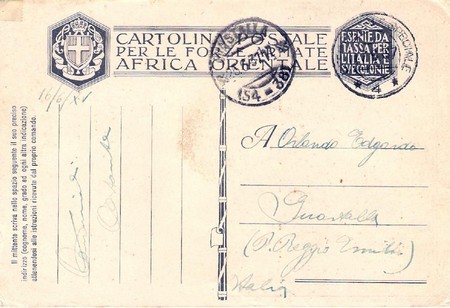 CARTOLINA POSTALE
PER LE FORZE ARMATE
AFRICA ORIENTALE
(54-38)
ESENTE DA
TASSA PER
L'ITALIA E
SVE COLONIE
SPECIALE
* 4 *
Il mittente scriva nello spazio seguente il suo preciso
indirizzo (cognome, nome, grado ed ogni altra indicazione)
attenendosi alle istruzioni ricevute dal proprio comando.
A Orlando Edgardo
Guastalla
(P. Reggio Emilia)
Italia